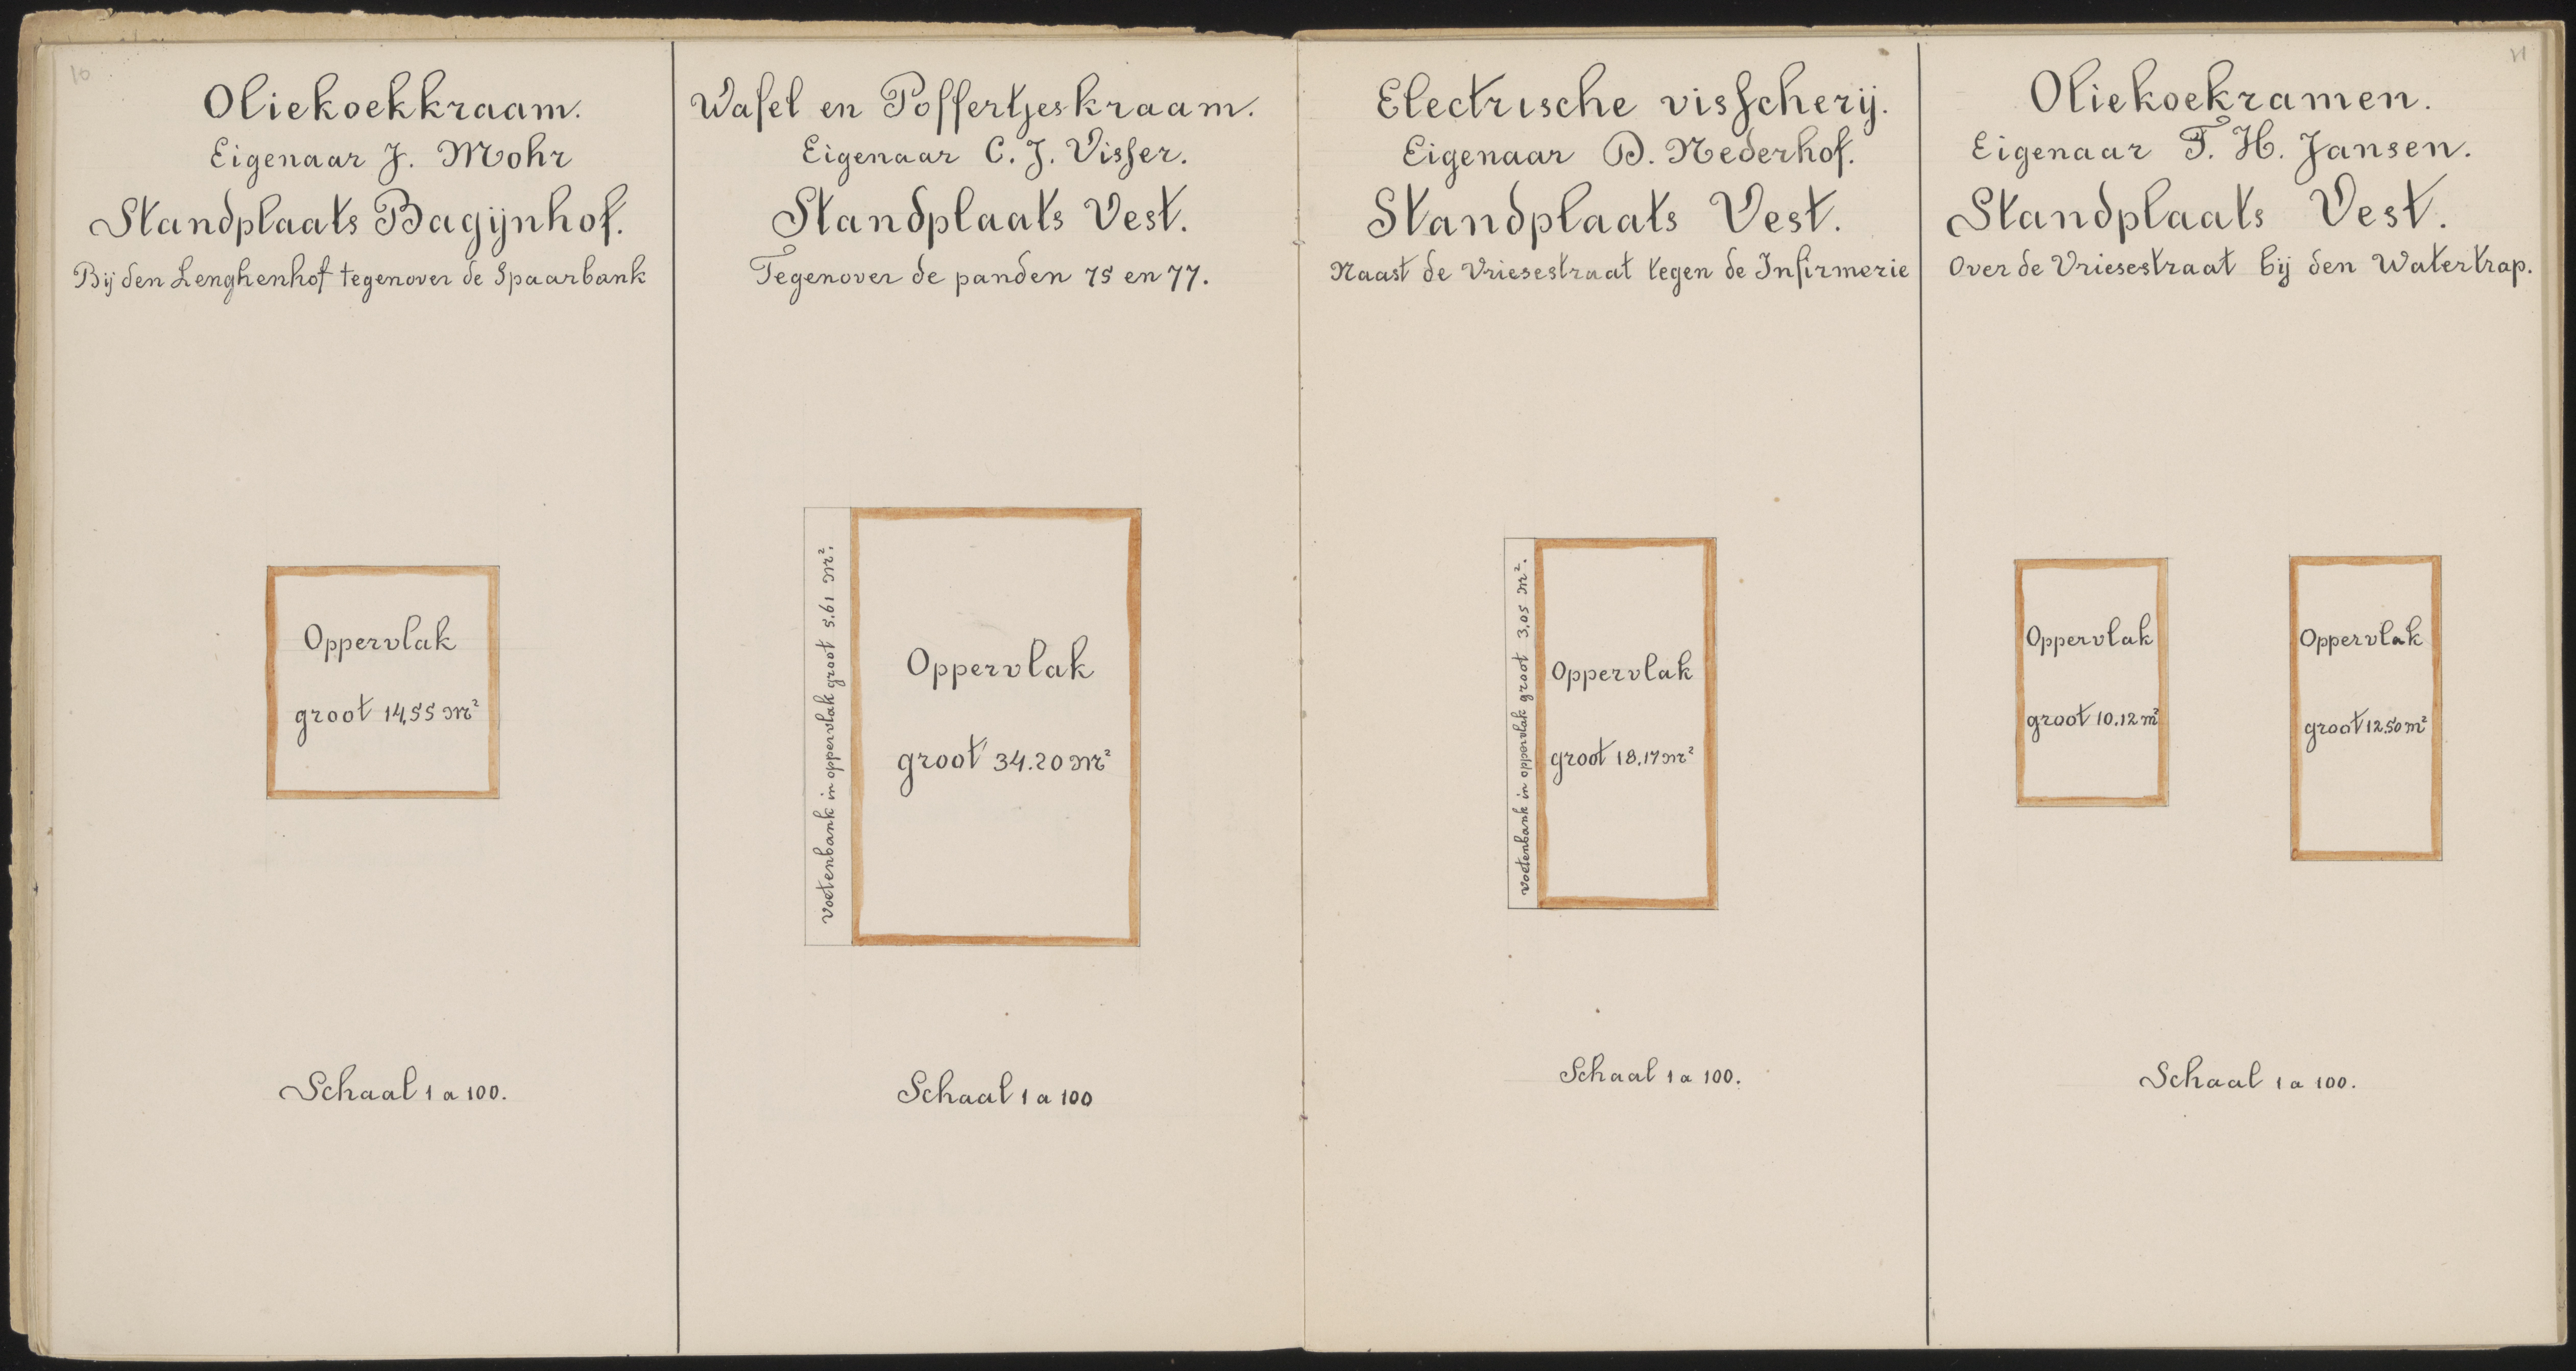 10
Oliekoekkraam.
Eigenaar J. Mohr
Standplaats Bagijnhof.
Bij den Lenghenhof tegenover de Spaarbank
Oppervlak
groot 14,55 m²
Schaal 1 a 100.
Wafel en Poffertjeskraam.
Eigenaar C. J. Visser.
Standplaats Vest.
Tegenover de panden 75 en 77.
Voetenbank in oppervlak groot 5.61 m².
Oppervlak
groot 34.20 m²
Schaal 1 a 100
Electrische visscherij.
Eigenaar D. Nederhof.
Standplaats Vest.
Naast de Vriesestraat tegen de Infirmerie
Voetenbank in oppervlak groot 3,05 m².
Oppervlak
groot 18,17 m²
Schaal 1 a 100.
11
Oliekoekramen.
Eigenaar T. H. Jansen.
Standplaats Vest.
Over de Vriesestraat bij den Watertrap.
Oppervlak
groot 10.12 m²
Oppervlak
groot 12.50 m²
Schaal 1 a 100.